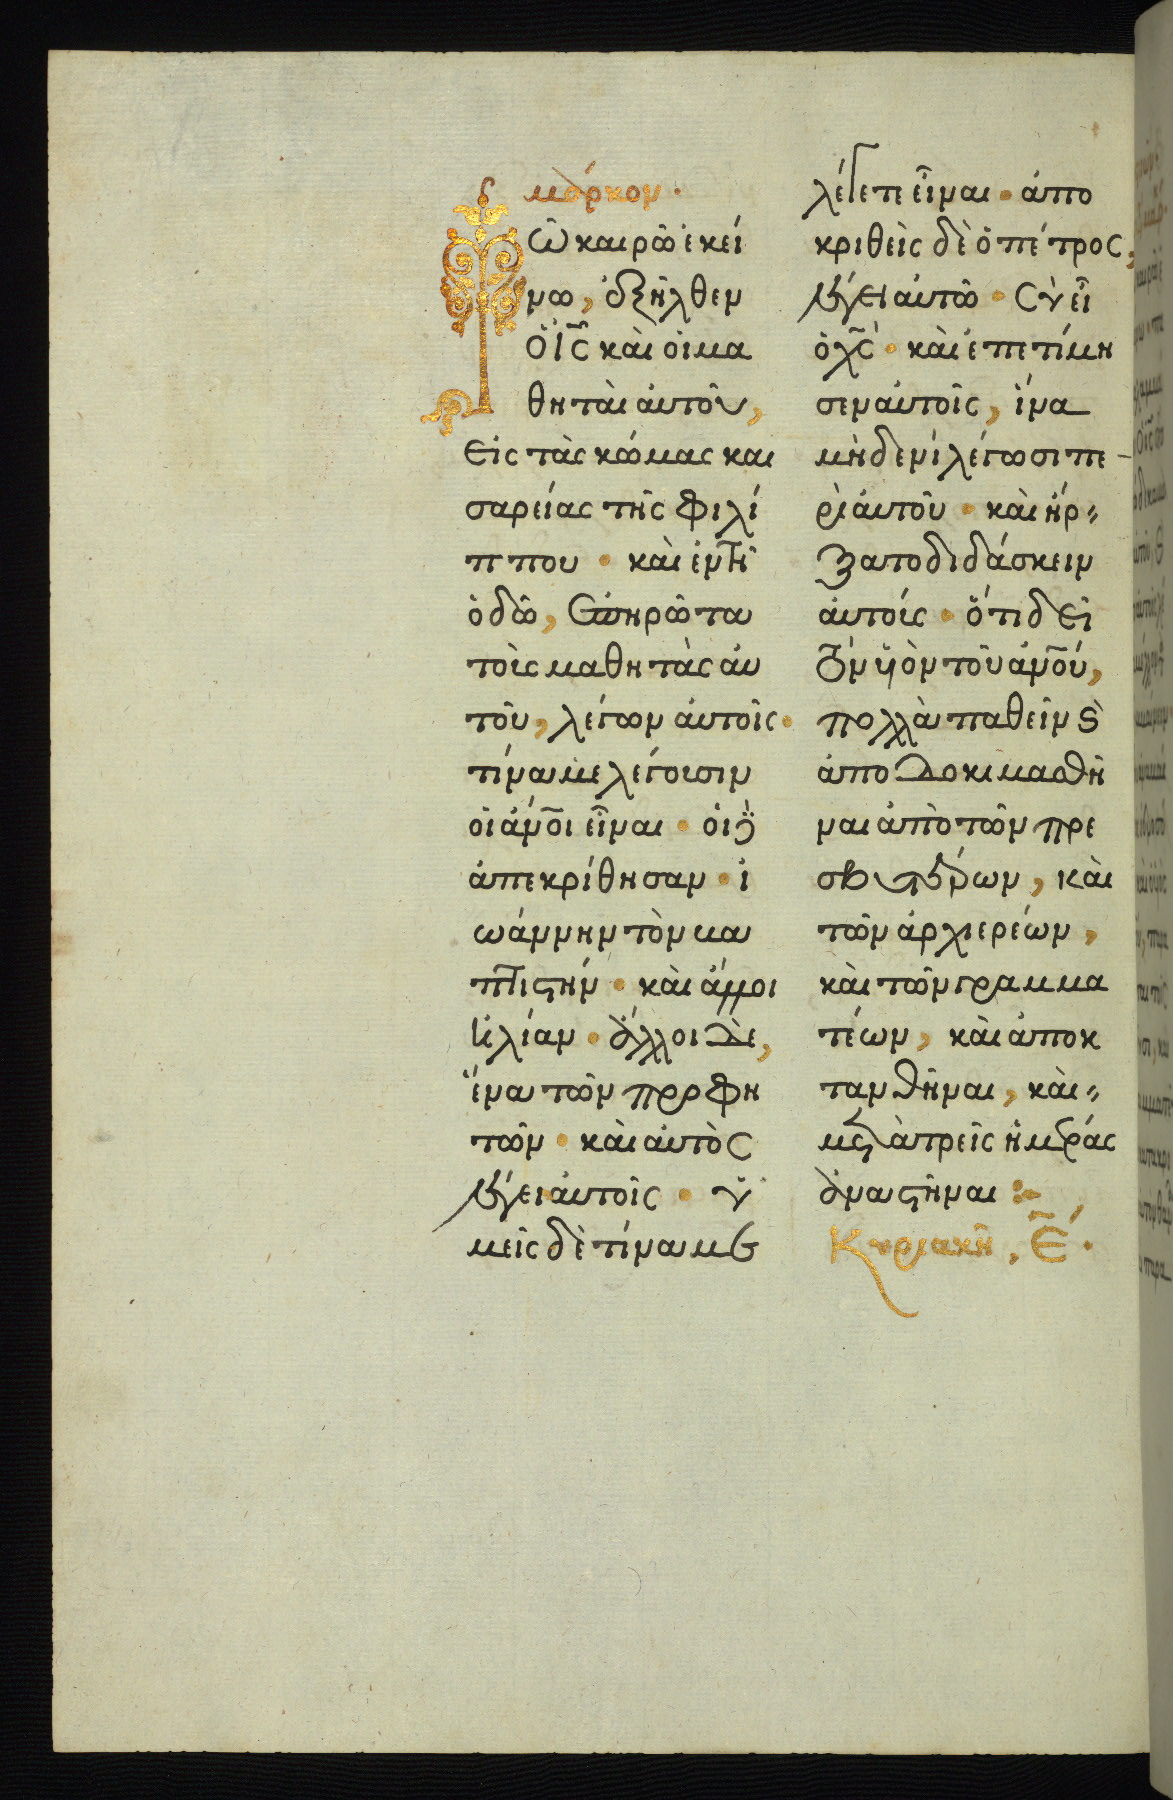 μάρκον·
Τῶ καιρῶ ἐκεί
νω, ἐξῆλθεν
ὁ ἰς καὶ οἱ μα
θηταὶ αὐτοῦ,
εἰς τὰς κώμας και
σαρείας τῆς φιλί
ππου · καὶ ἐν τῆ
ὁδῶ, ἐπηρώτα
τοὺς μαθητὰς αὐ
τοῦ, λέγων αὐτοῖς·
τίνα με λέγουσιν
οἱ ἀνοι εἶναι · οἱ δὲ
ἀπεκρίθησαν · ἰ
ωάννην τὸν βα
πτιστήν · καὶ ἄλλοι
ἠλίαν · ἄλλοι δὲ,
ἕνα τῶν προφη
τῶν · καὶ αὐτὸς
λέγει αὐτοῖς · ὑ
μεῖς δὲ τίνα με
λέγετε εἶναι · ἀπο
κριθεὶς δὲ ὁ πέτρος,
λέγει αὐτῶ · σὺ εἶ
ὁ χς · καὶ ἐπετίμη
σεν αὐτοῖς, ἵνα
μηδενὶ λέγωσι πε
ρὶ αὐτοῦ · καὶ ἤρ
ξατο διδάσκειν
αὐτοίς · ὅτι δεῖ
τὸν ὑιὸν τοῦ ἀνου,
πολλὰ παθεῖν καὶ
ἀποδοκιμασθῆ
ναι ἀπὸ τῶν πρε
σβυτέρων, καὶ
τῶν ἀρχιερέων,
καὶ τῶν γραμμα
τέων, καὶ ἀποκ
τανθῆναι, καὶ
μετὰ τρεῖς ἡμέρας
ἀναστῆναι :~
Κυριακῆ, Ε·